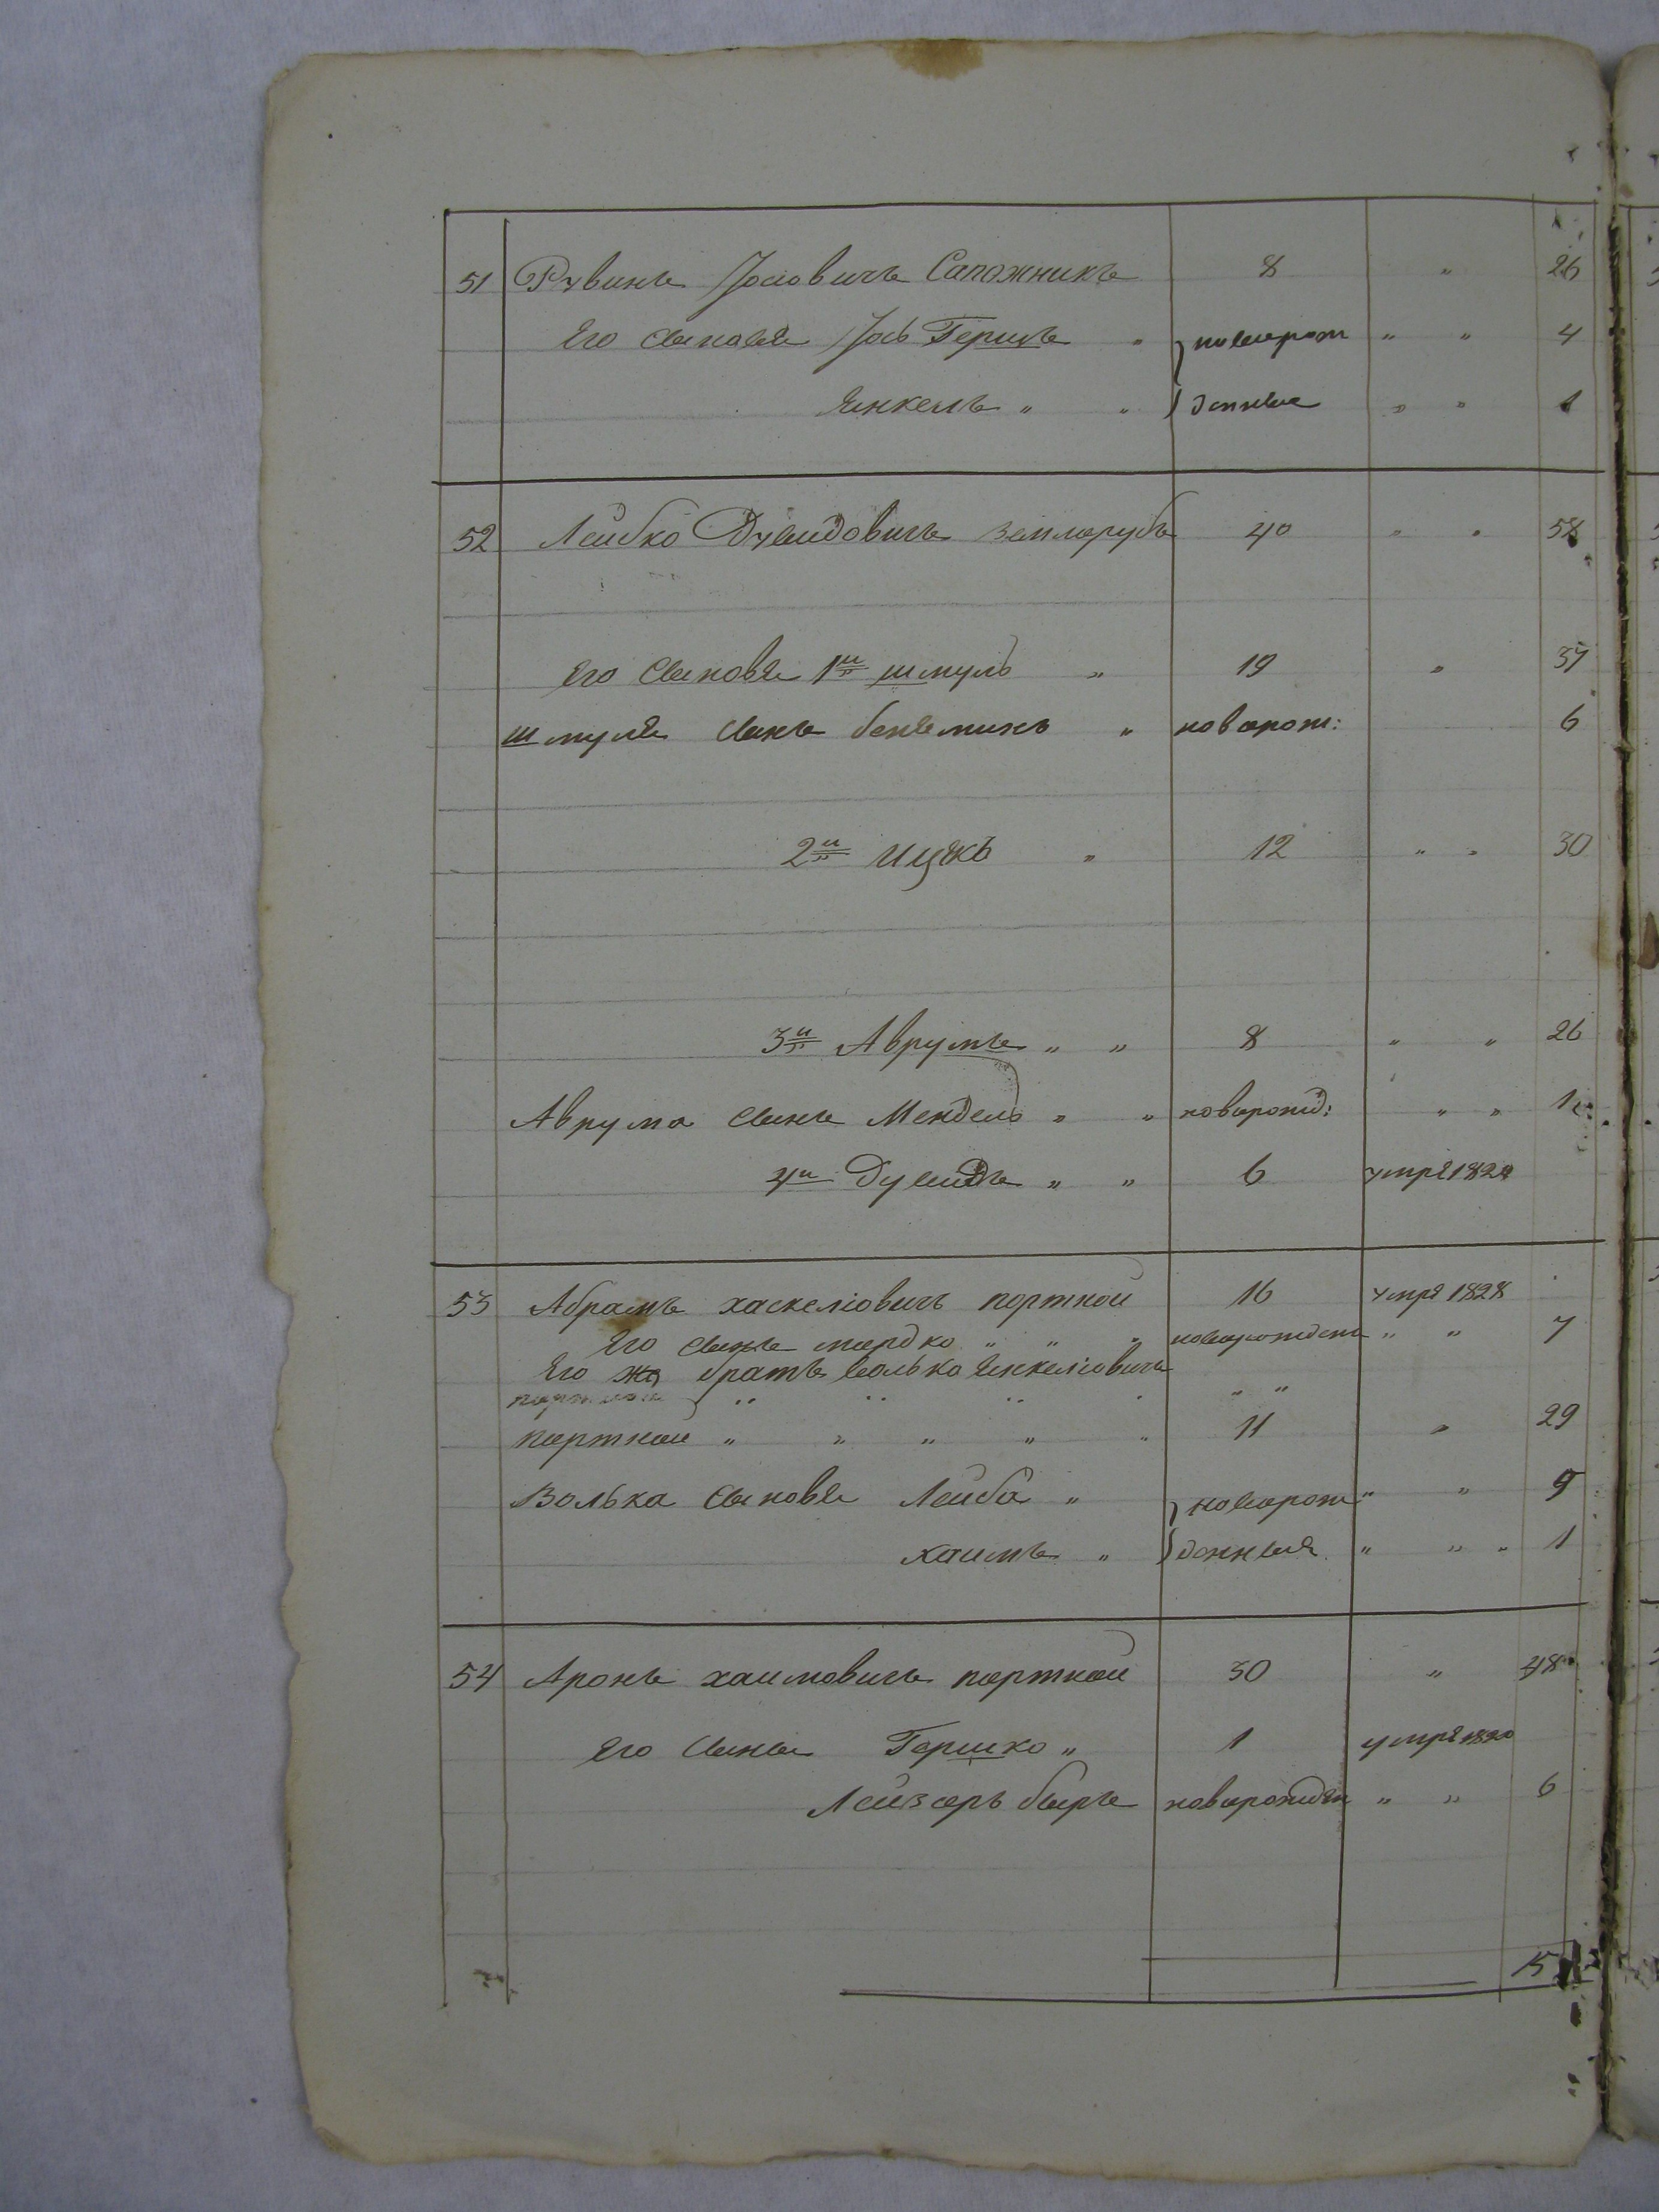 51 Рувинъ Іосіовичъ Сапожникъ 8 " 26
Его Сыновья Іось Гершъ " новорож " " 4
Янкель " " денные " " 1
52 Лейбко Дувидовичъ землерубъ 40 " " 58
Его Сыновья 1й Шмуль " 19 " 37
Шмуля Сынъ бенѣминъ " поворож: 6
2й Ицкъ " 12 " " 30
3й Аврумъ " " 8 " " 26
Аврума Сынъ Мендель " " новорожд: " " 1
4й Дувидъ " " 6 умре
53 Абрамъ хаскеліовичъ портной 16 умре 1828
Его Сынъ мардко " " " новорожден " " 7
Его же братъ волько Янкеліовичъ
портной " " " " " "
портной " " " " " 11 " 29
Волька Сыновья Лейба " новорож " " 9
хаимъ " денныя " " " 1
54 Аронъ хаимовичъ портной 30 " 48
Его Сынъ Гершко " 1 умре
Лейзеръ беръ новорожден " " 6
15